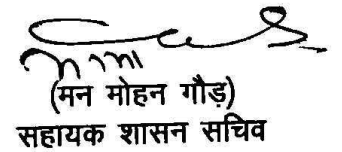 (मन मोहन गौड़)
सहायक शासन सचिव